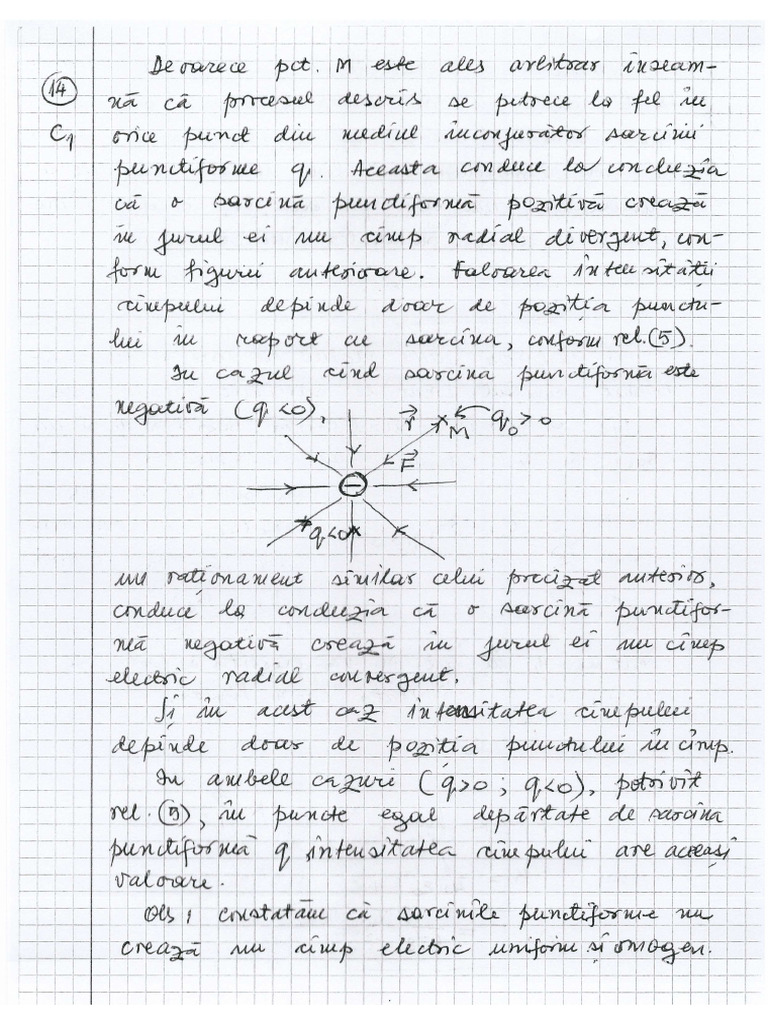 14
C1
Deoarece pct. M este ales arbitrar înseam-
nă că procesul descris se petrece la fel în
orice punct din mediul înconjurător sarcinii
punctiforme q. Aceasta conduce la concluzia
că o sarcină punctiformă pozitivă crează
în jurul ei un cîmp radial divergent, con-
form figurii anterioare. Valoarea intensității
cîmpului depinde doar de poziția punctu-
lui în raport cu sarcina, conform rel. (5).
In cazul cînd sarcina punctiformă este
negativă (q<0),
r⃗ M q0>0
F⃗
−
q<0
un raționament similar celui precizat anterior,
conduce la concluzia că o sarcină punctifor-
mă negativă crează în jurul ei un cîmp
electric radial convergent.
Și în acest caz intensitatea cîmpului
depinde doar de poziția punctului în cîmp.
In ambele cazuri (q>0 ; q<0), potrivit
rel. (5), în puncte egal depărtate de sarcina
punctiformă q intensitatea cîmpului are aceeași
valoare.
Obs, constatăm că sarcinile punctiforme nu
crează un cîmp electric uniform și omogen.